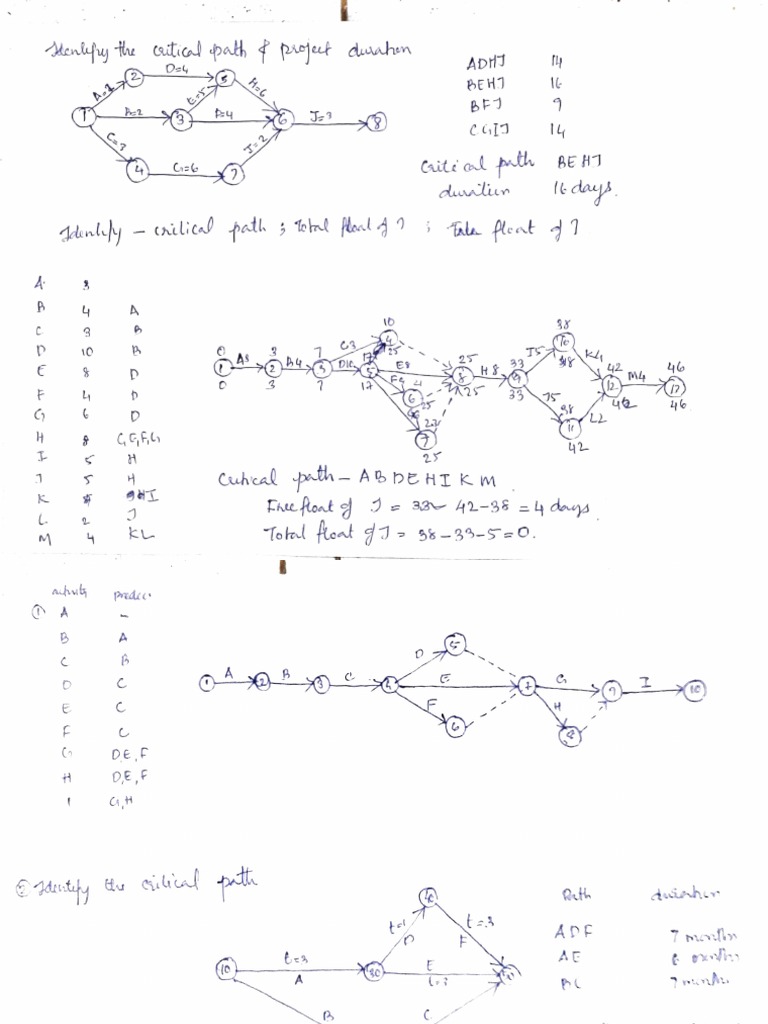 Identify the critical path & project duration
ADHJ 14
BEHJ 16
BFJ 9
CGIJ 14
Critical path BEHJ
duration 16 days.
1 2 5 3 6 8 4 7
D=4
B=2
C=3
G=6
F=4
H=6
J=3
Identify - critical path ; Total float of J ; Free float of J
A 3
B 4 A
C 3 B
D 10 B
E 8 D
F 4 D
G 6 D
H 8 C,E,F,G
I 5 H
J 5 H
K I
L 2 J
M 4 KL
0 3 7 10 17 25 33 38 42 46
A3 B4 C3 D10 E8 F4 H8 I5 J5 K4 L2 M4
Critical path - ABDEHIKM
Free float of J = 42-38 = 4 days
Total float of J = 38-33-5=0.
① A -
B A
C B
D C
E C
F C
G D,E,F
H D,E,F
I G,H
1 A 2 B 3 C 4 D 5 E F 6 7 G H 8 9 I 10
② Identify the critical path
Path duration
ADF 7 months
AE months
BC 7 months
t=1 D
t=3 F
10 t=3 A
E
B C